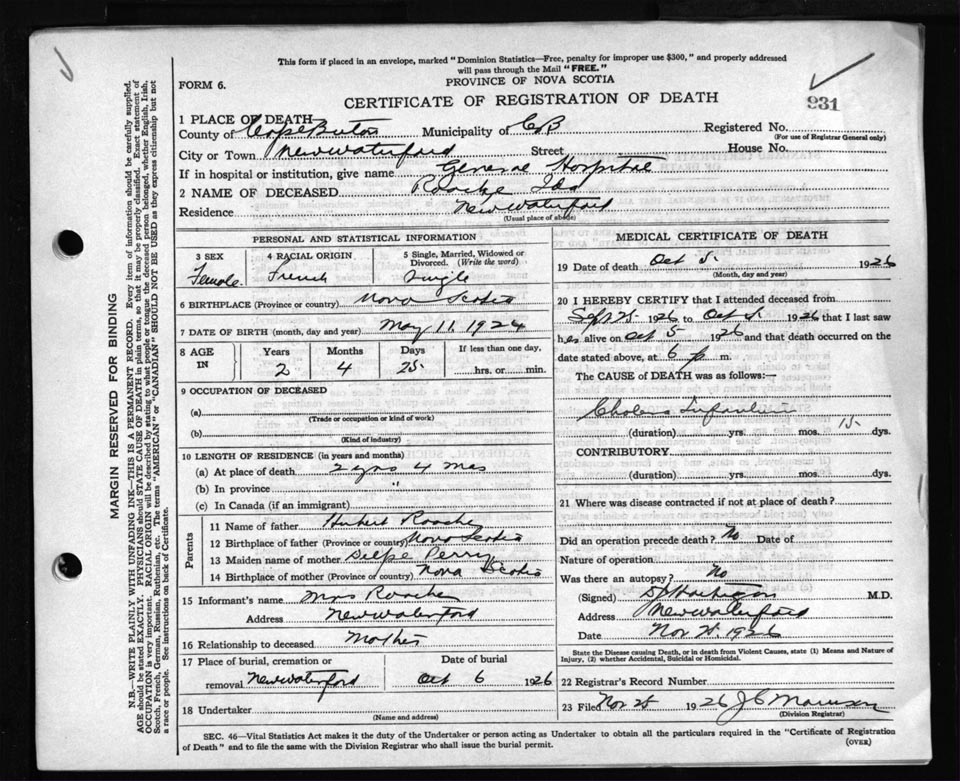 This form if placed in an envelope, marked "Dominion Statistics—Free, penalty for improper use $300," and properly addressed
will pass through the Mail "FREE."
PROVINCE OF NOVA SCOTIA
FORM 6.
CERTIFICATE OF REGISTRATION OF DEATH
931
1 PLACE OF DEATH
County of Cape Breton Municipality of CB Registered No.
(For use of Registrar General only)
City or Town New Waterford Street House No.
If in hospital or institution, give name General Hospital
2 NAME OF DECEASED Roache Ida
Residence New Waterford
(Usual place of abode)
PERSONAL AND STATISTICAL INFORMATION
3 SEX 4 RACIAL ORIGIN 5 Single, Married, Widowed or
Divorced. (Write the word)
Female French Single
6 BIRTHPLACE (Province or country) Nova Scotia
7 DATE OF BIRTH (month, day and year) May 11, 1924
8 AGE IN Years Months Days If less than one day,
2 4 25 hrs. or min.
9 OCCUPATION OF DECEASED
(a)
(Trade or occupation or kind of work)
(b)
(Kind of industry)
10 LENGTH OF RESIDENCE (in years and months)
(a) At place of death 2 yrs 4 mos
(b) In province "
(c) In Canada (if an immigrant)
Parents
11 Name of father Hubert Roache
12 Birthplace of father (Province or country) Nova Scotia
13 Maiden name of mother Perry
14 Birthplace of mother (Province or country) Nova Scotia
15 Informant's name Mrs Roache
Address New Waterford
16 Relationship to deceased Mother
17 Place of burial, cremation or Date of burial
removal New Waterford Oct 6 1926
18 Undertaker
(Name and address)
MEDICAL CERTIFICATE OF DEATH
19 Date of death Oct 5. 1926
(Month, day and year)
20 I HEREBY CERTIFY that I attended deceased from
Sept 25 1926 to Oct 5 1926 that I last saw
her alive on Oct 5 1926 and that death occurred on the
date stated above, at 6 p m.
The CAUSE of DEATH was as follows:—
Cholera Infantum
(duration) yrs. mos. 15 dys.
CONTRIBUTORY
(duration) yrs. mos. dys.
21 Where was disease contracted if not at place of death?
Did an operation precede death? No Date of
Nature of operation
Was there an autopsy? No
(Signed) M.D.
Address New Waterford
Date Nov 1926
State the Disease causing Death, or in death from Violent Causes, state (1) Means and Nature of
Injury, (2) whether Accidental, Suicidal or Homicidal.
22 Registrar's Record Number
23 Filed Nov 1926
(Division Registrar)
SEC. 46—Vital Statistics Act makes it the duty of the Undertaker or person acting as Undertaker to obtain all the particulars required in the "Certificate of Registration
of Death" and to file the same with the Division Registrar who shall issue the burial permit.
(OVER)
MARGIN RESERVED FOR BINDING
N.B.—WRITE PLAINLY WITH UNFADING INK—THIS IS A PERMANENT RECORD. Every item of information should be carefully supplied.
AGE should be stated EXACTLY. PHYSICIANS should STATE CAUSE OF DEATH in plain terms, so that it may be properly classified. Exact statement of
OCCUPATION is very important. RACIAL ORIGIN will be described by stating to what people or tongue the deceased person belonged, whether English, Irish,
Scotch, French, German, Russian, Ruthenian, etc. The terms "AMERICAN" or "CANADIAN" SHOULD NOT BE USED as they express citizenship but not
a race or people. See instructions on back of Certificate.